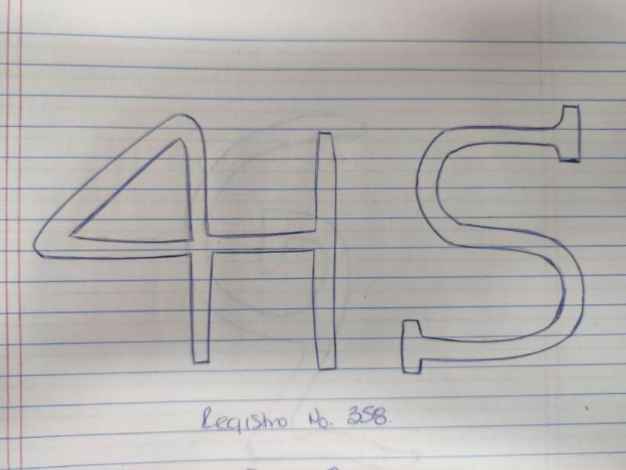 4H S
Registro No. 358